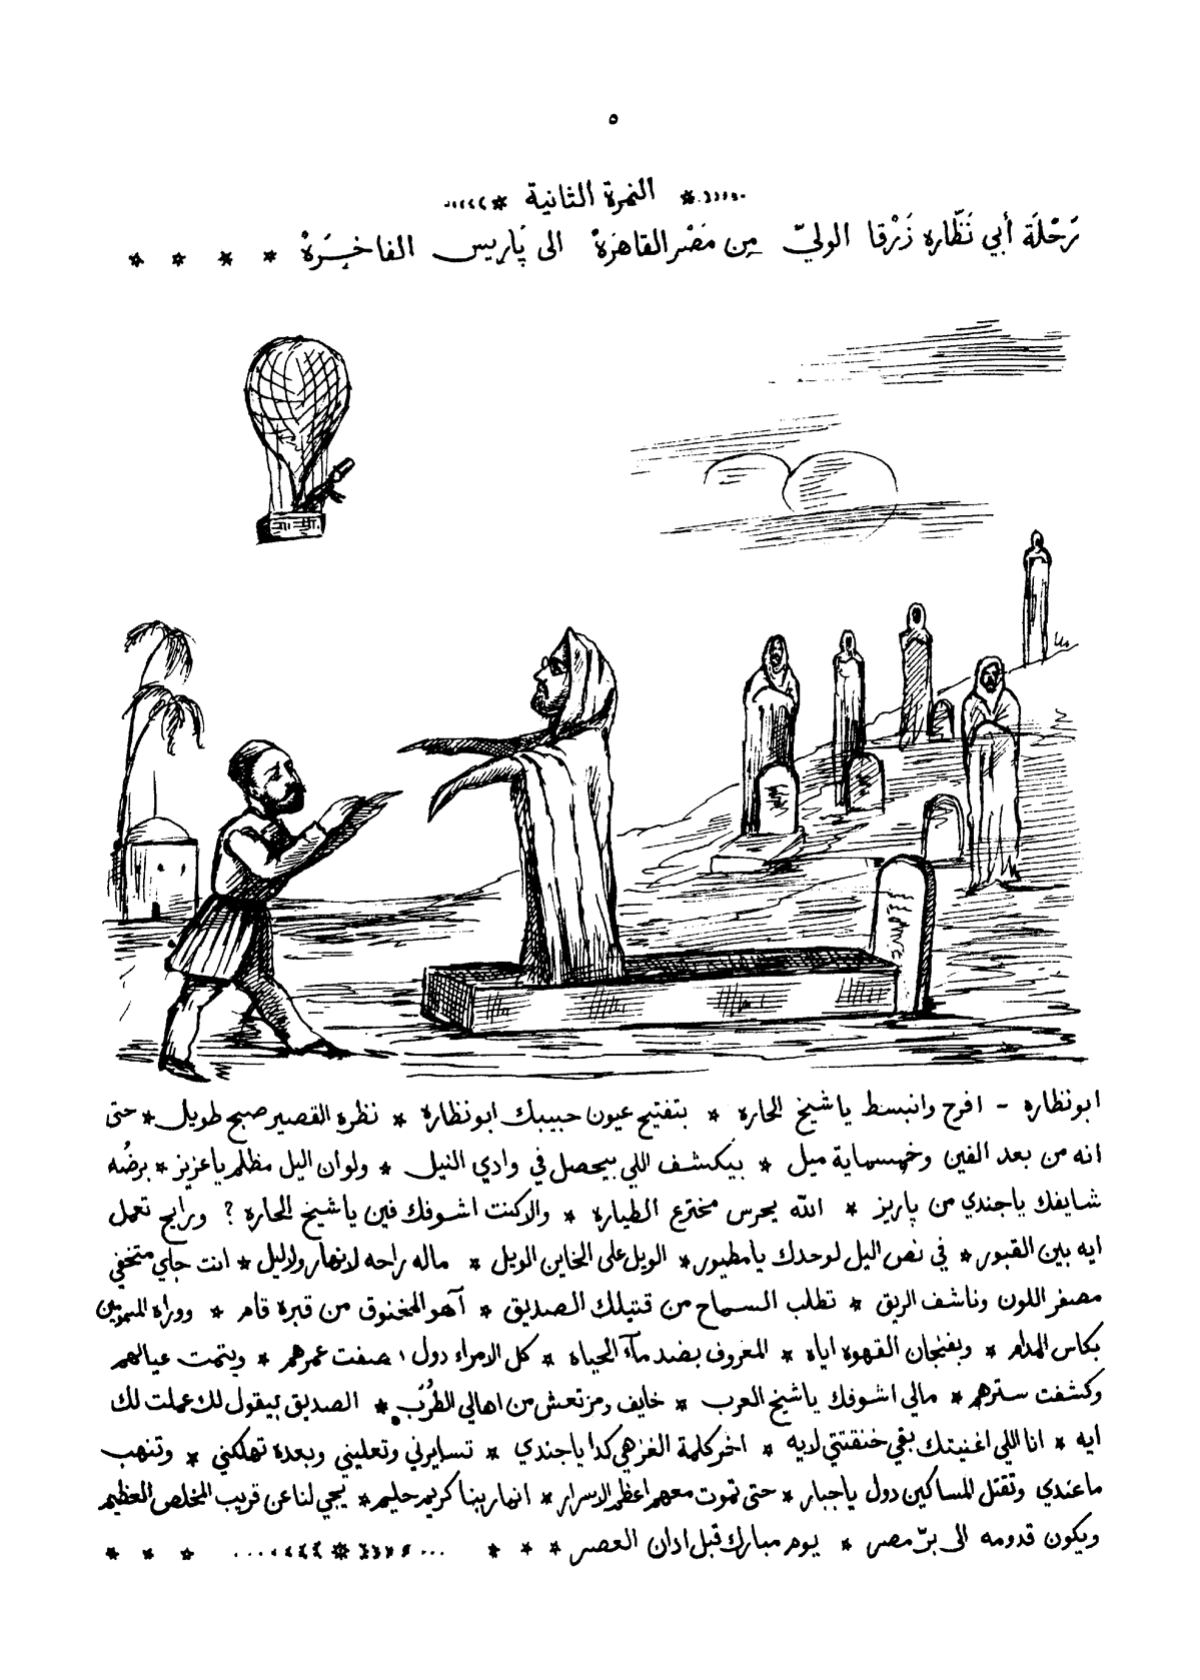 ٥
النمرة الثانية
رَحْلَة أبي نَظّاره زَرْقا الوليّ مِن مَصْر القاهرَةْ الى پَاريس الفاخِرَةْ * * * *
ابو نظاره - افرح وانبسط ياشيخ الحاره * بتفتيح عيون حبيبك ابونظارة * نظره القصير صبح طويل * حتى
انه من بعد الفين وخمسماية ميل * بيكشف اللي بيحصل في وادي النيل * ولو ان اليل مظلم ياعزيز * برضُه
شايفك ياجندي من پاريز * الله يحرس مخترع الطياره * والا كنت اشوفك فين ياشيخ الحاره ؟ ورايح تعمل
ايه بين القبور * في نص اليل لوحدك يامطيور * الويل على الخاين الويل * ماله راحه لانهار ولاليل * انت جاي متخفي
مصفر اللون وناشف الريق * تطلب السماح من قتيلك الصديق * آهو المخنوق من قبره قام * ووراه المسمومين
بكاس المدام * وبفنجان القهوه اياه * المعروف بضد مآء الحياة * كل الامراء دول صفت عمرهم * ويتمت عيالهم
وكشفت سترهم * مالي اشوفك ياشيخ العرب * خايف ومرتعش من اهالي الطُرَب * الصديق بيقول لك عملت لك
ايه * انا اللي اغنيتك بقى خنقتني لايه * اخر كلمة الغز هي كدا ياجندي * تسايرني وتعليني وبعده تهلكني * وتنهب
ماعندي وتقتل المساكين دول ياجبار * حتى تموت معهم اعظم الاسرار * انما ربنا كريم حليم * يجي لنا عن قريب المخلص العظيم
ويكون قدومه الى برّ مصر * يوم مبارك قبل ادان العصر * * *